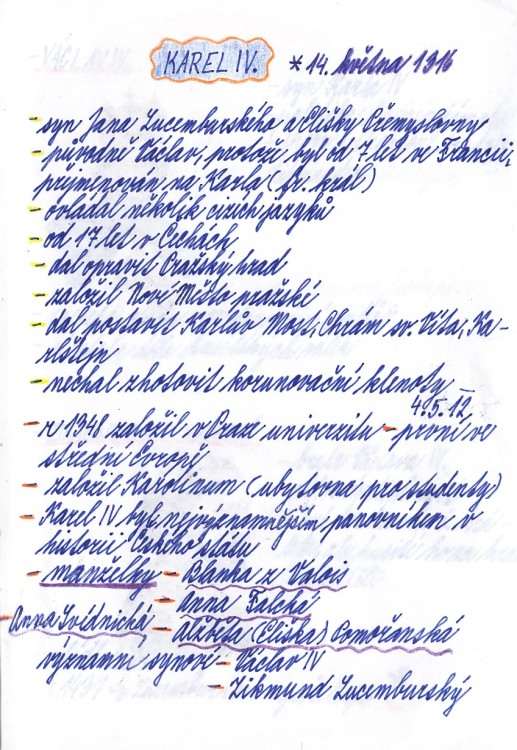 KAREL IV. * 14. května 1316
- syn Jana Lucemburského a Elišky Přemyslovny
- původně Václav, protože byl od 7 let ve Francii,
přijmenován na Karla (fr. král)
- ovládal několik cizích jazyků
- od 17 let v Čechách
- dal opravit Pražský hrad
- založil Nové Město pražské
- dal postavit Karlův Most, Chrám sv. Víta, Ka-
rlštejn
- nechal zhotovit korunovační klenoty -
4.5.12
- r 1348 založil v Praze univerzitu - první ve
střední Evropě
- založil Karolinum (ubytovna pro studenty)
- Karel IV byl nejvýznamnějším panovníkem v
historii Českého státu
- manželky - Blanka z Valois
- Anna Falcká
- Anna Svídnická - Alžběta (Eliška) Pomořanská
významní synové - Václav IV
- Zikmund Lucemburský